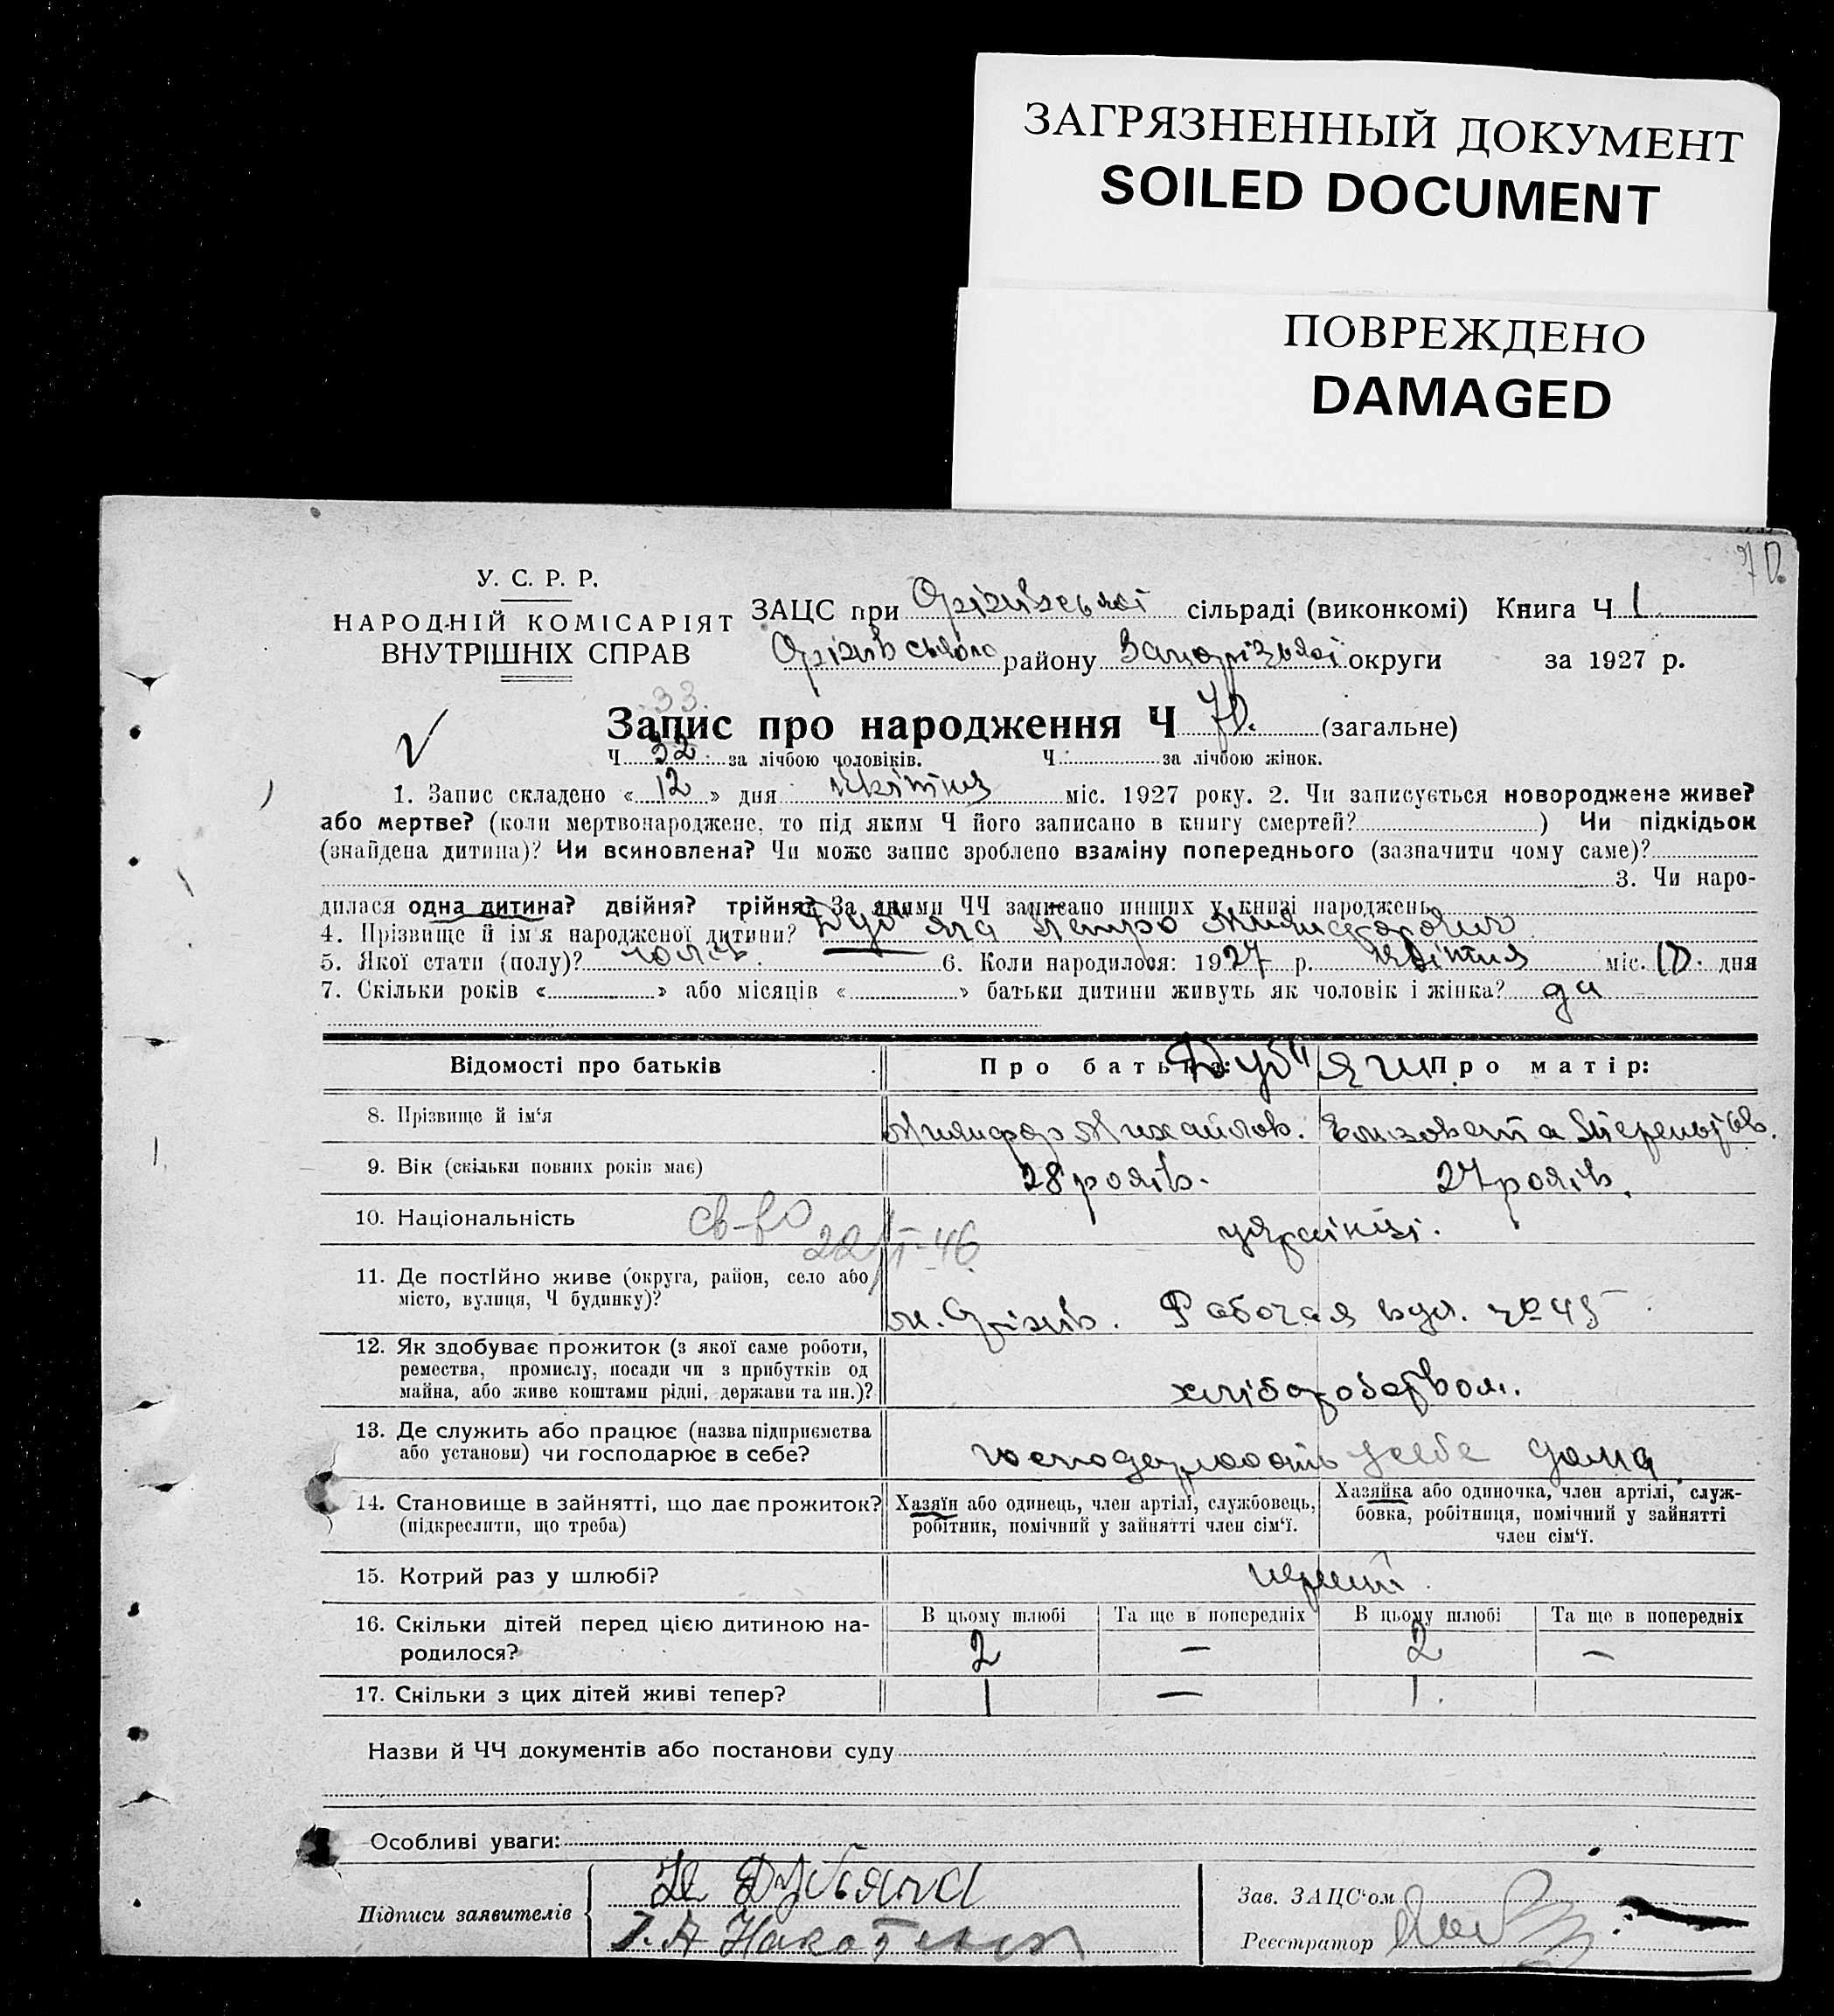 ЗАГРЯЗНЕННЫЙ ДОКУМЕНТ
SOILED DOCUMENT
ПОВРЕЖДЕНО
DAMAGED
70.
У. С. Р. Р.
НАРОДНІЙ КОМІСАРІЯТ
ВНУТРІШНІХ СПРАВ
ЗАЦС при Оріхівській сільраді (виконкомі) Книга Ч 1
Оріхівського району Запорізької округи за 1927 р.
33.
Запис про народження Ч 70. (загальне)
Ч 32 за лічбою чоловіків. Ч за лічбою жінок.
1. Запис складено « 12 » дня квітня міс. 1927 року. 2. Чи записується новороджене живе?
або мертве? (коли мертвонароджене, то під яким Ч його записано в книгу смертей? ) Чи підкідьок
(знайдена дитина)? Чи всиновлена? Чи може запис зроблено взаміну попереднього (зазначити чому саме)?
3. Чи наро-
дилася одна дитина? двійня? трійня? За якими ЧЧ записано инших у книзі народжень
4. Прізвище й ім'я народженої дитини? Дуб"яга Петро Никифорович
5. Якої стати (полу)? чолов. 6. Коли народилося: 1927 р. квітня міс. 10. дня
7. Скільки років « » або місяців « » батьки дитини живуть як чоловік і жінка? да
Відомості про батьків Про батька: Про матір:
Дуб"яги
8. Прізвище й ім'я Никифор Михайлов. Елизовета Терентьев.
9. Вік (скільки повних років має) 28 років. 27 років.
10. Національність українці.
св-во 22/
46
11. Де постІйно живе (округа, район, село або
місто, вулиця, Ч будинку)? м. Оріхів. Рабочая вул. № 45
12. Як здобуває прожиток (з якої саме роботи,
ремества, промислу, посади чи з прибутків од
майна, або живе коштами рідні, держави та ин.)? хліборобством.
13. Де служить або працює (назва підприємства
або установи) чи господарює в себе? господарюють у себе дома.
14. Становище в зайнятті, що дає прожиток?
(підкреслити, що треба)
Хазяїн або одинець, член артілі, службовець,
робітник, помічний у зайнятті член сім'ї.
Хазяйка або одиночка, член артілі, служ-
бовка, робітниця, помічний у зайнятті
член сім'ї.
15. Котрий раз у шлюбі? перший.
16. Скільки дітей перед цією дитиною на-
родилося?
В цьому шлюбі Та ще в попередніх В цьому шлюбі Та ще в попередніх
2 — 2 —
17. Скільки з цих дітей живі тепер? 1 — 1.
Назви й ЧЧ документів або постанови суду
Особливі уваги:
Підписи заявителів
Н Дубьяга
Зав. ЗАЦС'ом
Реєстратор